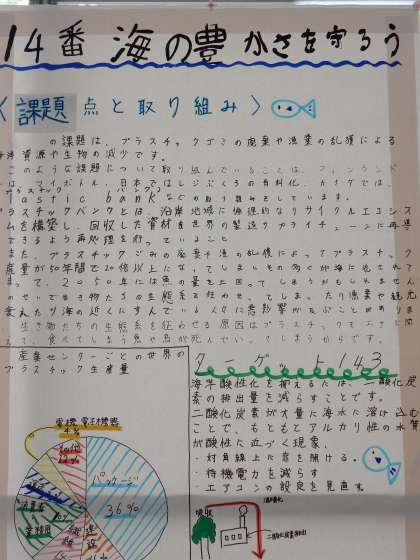 14番 海の豊かさを守ろう
〈課題点と取り組み〉
の課題は、プラスチックゴミの廃棄や漁業の乱獲による
海洋資源や生物の減少です。
このような課題について取り組んでいることは、フィンランド
は、マイボトル、日本ではレジぶくろの有料化、カナダでは、
Plastic bank などの取り組みをしています。
プラスチックバンクとは、沿岸地域に倫理的なリサイクルエコシステ
ムを構築し、回収した資材を世界の製造サプライチェーンに再導
できるよう再処理を行っていること
また、プラスチックごみの廃棄や魚の乱獲によってプラスチック
産量が50年間で20倍以上になってしまいその多くが海に流されて
まって、2050年には魚の量を上回ってしまうかもしれません
のせいで生き物たちの生態系を狂わせ、てしまったり漁業や観光
変えたり海の近くにすんでいる人々に悪影響がおよぶことがありま
生き物たちの生態系を狂わせる原因はプラスチックをエサと
て、食べてしまう魚や鳥が死んでいってしまうからです。
産業センターごとの世界の
プラスチック生産量
電機・電子機器
4%
その他
パッケージ
36%
消費者
業務用
繊維
建設
16%
ターゲット14.3
海洋酸性化を抑えるには、二酸化炭
素の排出量を減らすことです。
二酸化炭素が大量に海水に溶け込む
ことで、もともとアルカリ性の水質
が酸性に近づく現象、
・対角線上に窓を開ける。
・待機電力を減らす
・エアコンの設定を見直す。
吸収